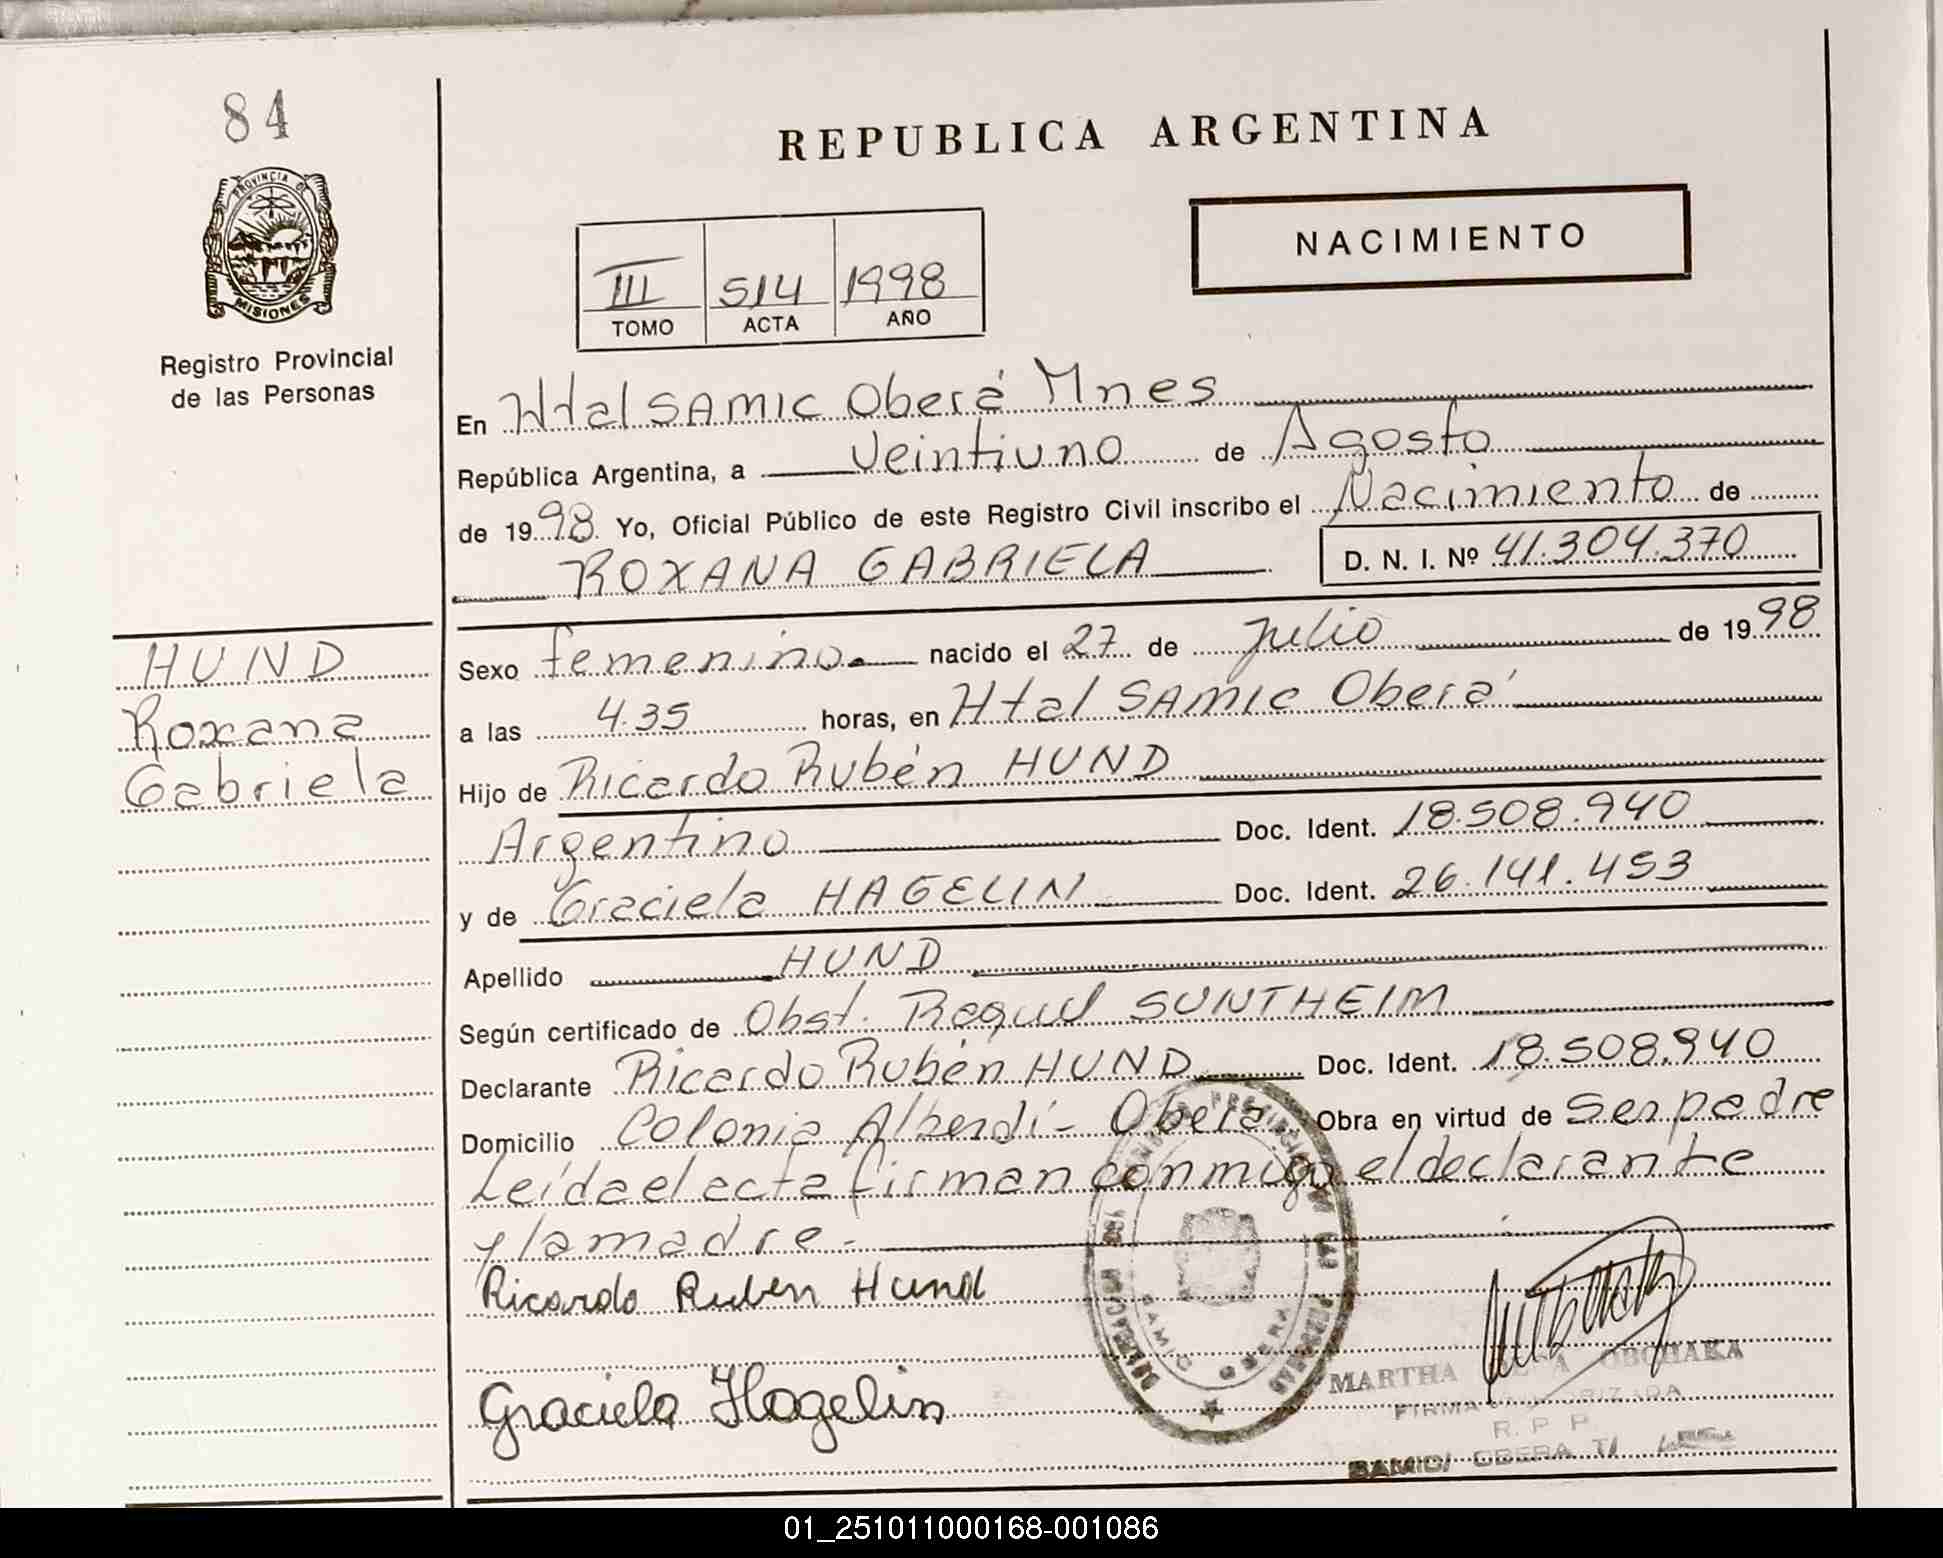 84
PROVINCIA DE
MISIONES
Registro Provincial
de las Personas
HUND
Roxana
Gabriela
REPUBLICA ARGENTINA
III 514 1998
TOMO ACTA AÑO
NACIMIENTO
En Htal SAMIC Oberá Mnes
República Argentina, a Veintiuno de Agosto
de 1998 Yo, Oficial Público de este Registro Civil inscribo el Nacimiento de
ROXANA GABRIELA D. N. I. Nº 41.304.370
Sexo femenino. nacido el 27 de Julio de 1998
a las 4.35 horas, en Htal SAMIC Oberá
Hijo de Ricardo Rubén HUND
Argentino Doc. Ident. 18.508.940
y de Graciela HAGELIN Doc. Ident. 26.141.453
Apellido HUND
Según certificado de Obst. Raquel SUNTHEIM
Declarante Ricardo Rubén HUND Doc. Ident. 18.508.940
Domicilio Colonia Alberdi - Oberá Obra en virtud de ser padre
Leída el acta firman conmigo el declarante
y la madre.-
Ricardo Ruben Hund
Graciela Hagelin
SAMIC OBERA
MARTHA OBCHAKA
FIRMA AUTORIZADA
R. P. P.
SAMIC/ OBERA
01_251011000168-001086